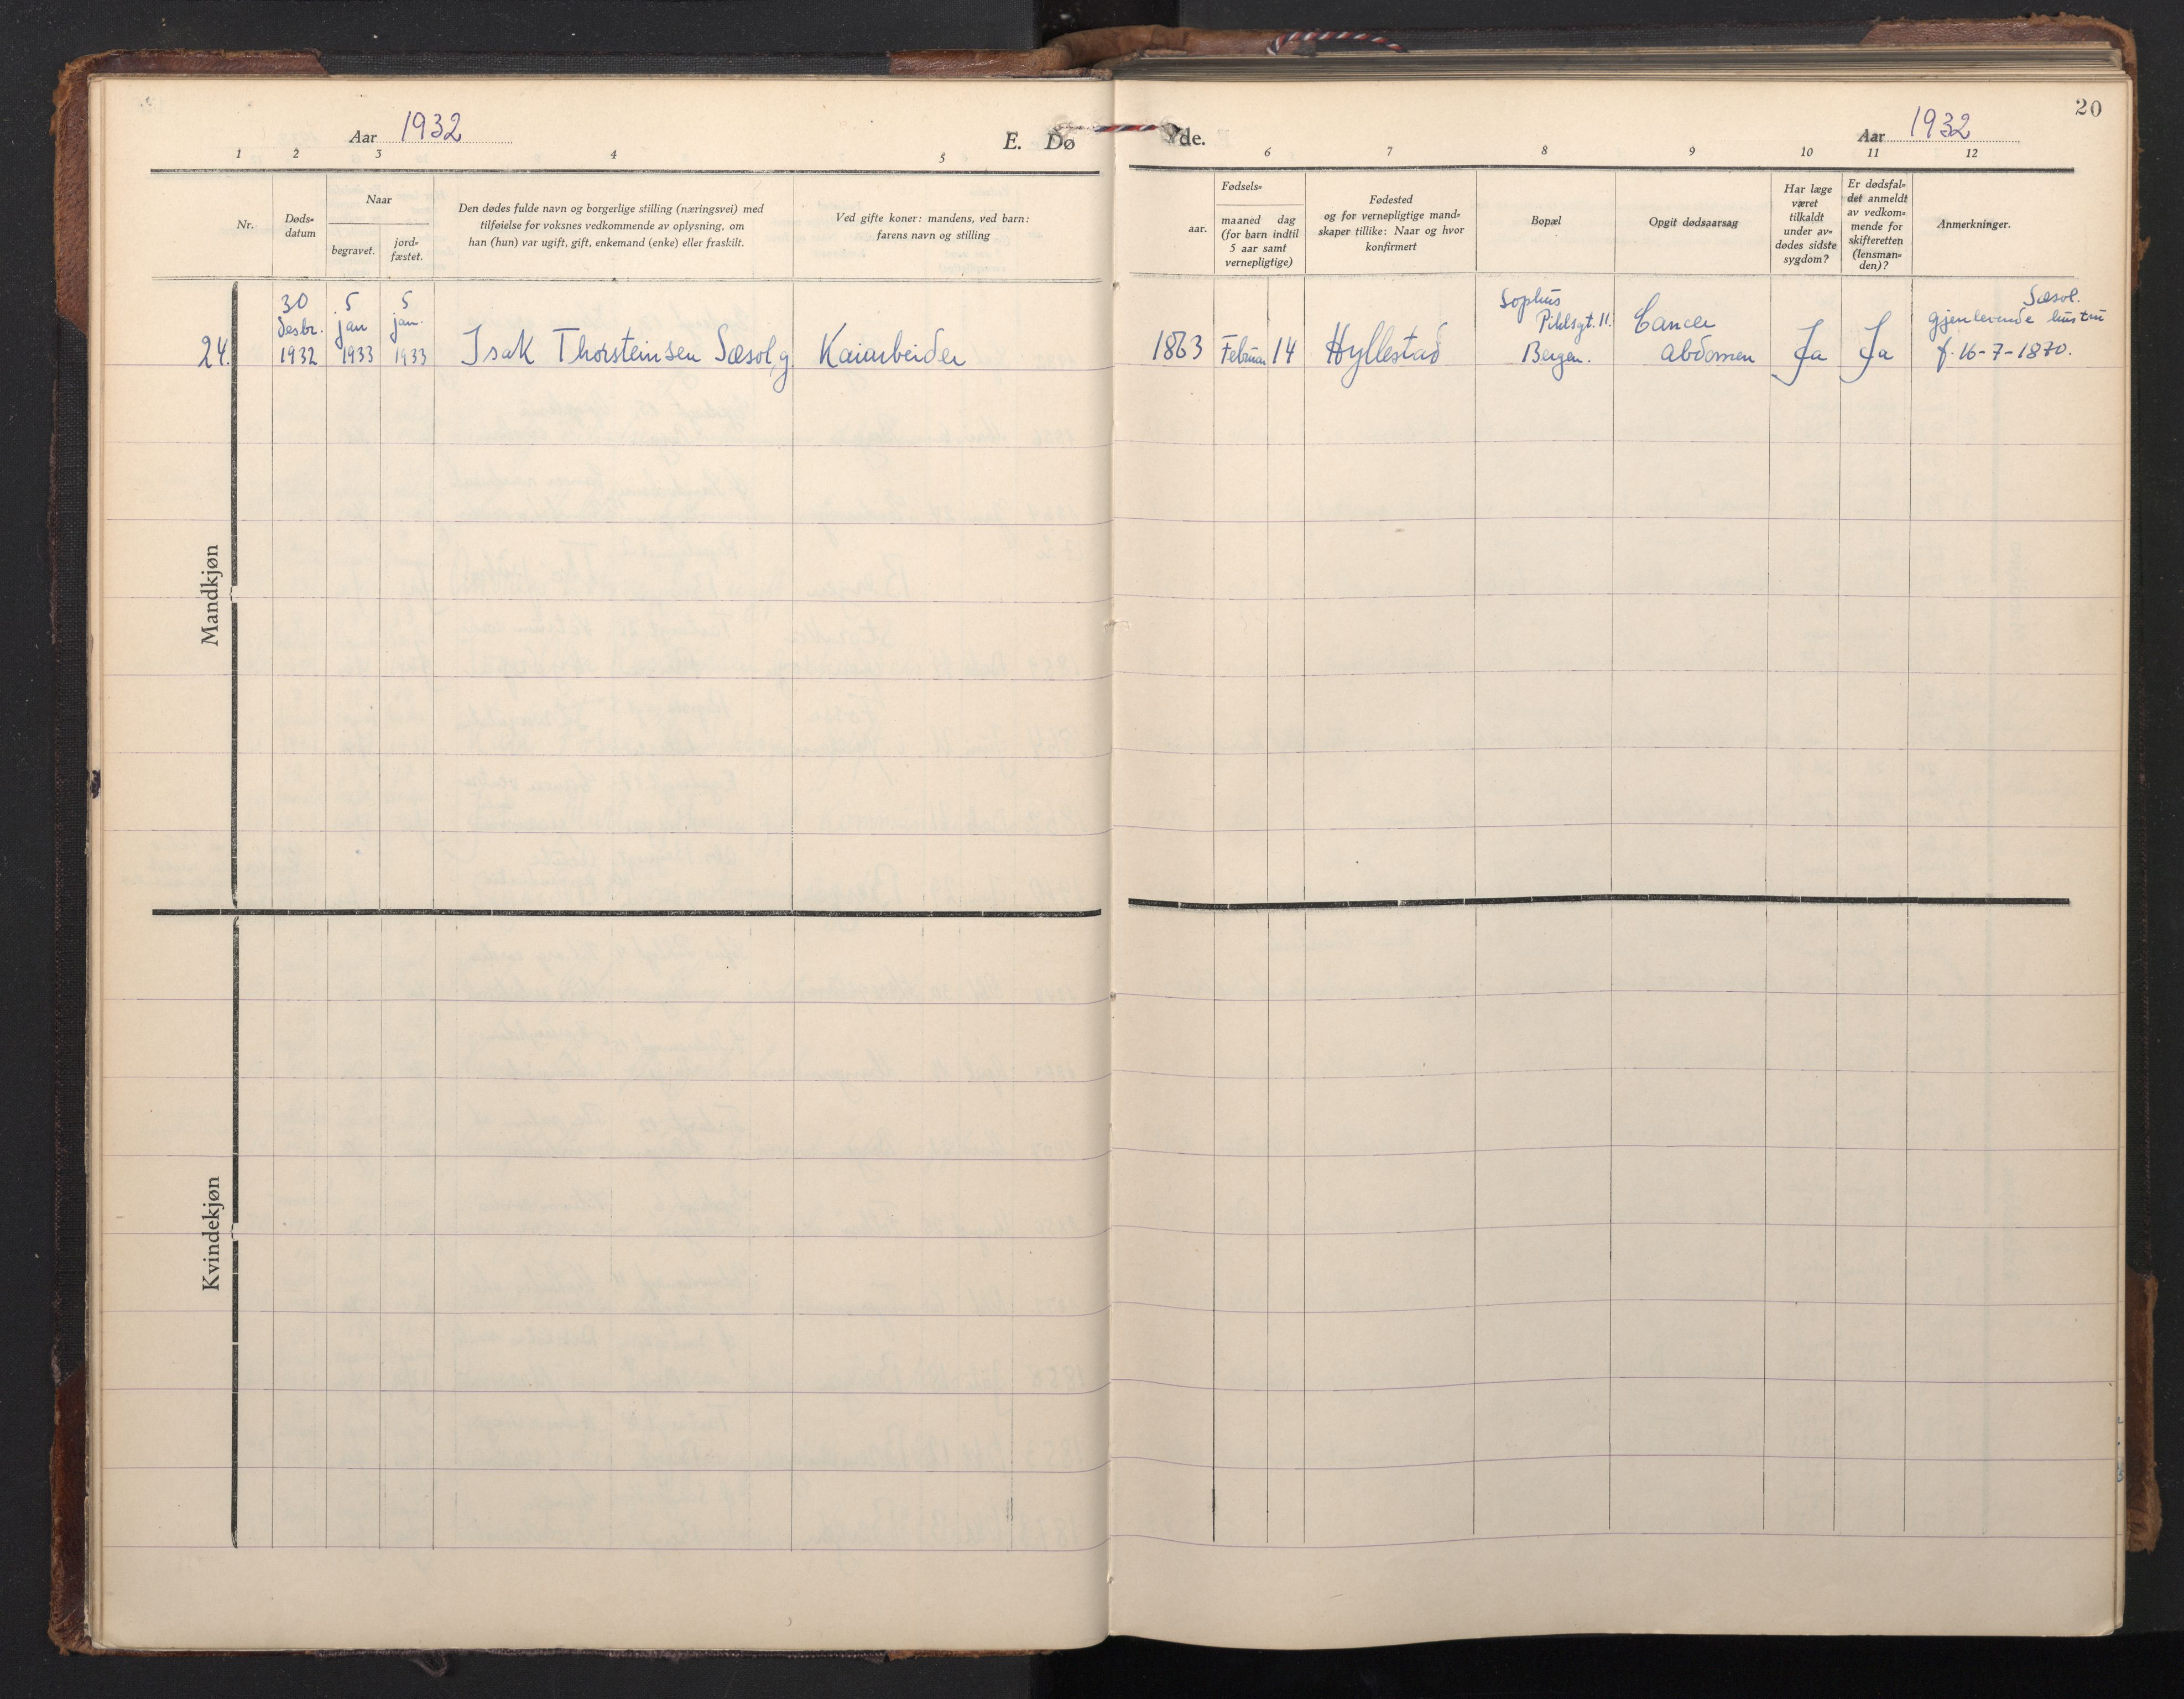 Aar 1932
E. Dø
1 2 3 4 5
Nr.
Døds-
datum
Naar
begravet.
jord-
fæstet.
Den dødes fulde navn og borgerlige stilling (næringsvei) med
tilføielse for voksnes vedkommende av oplysning, om
han (hun) var ugift, gift, enkemand (enke) eller fraskilt.
Ved gifte koner: mandens, ved barn:
farens navn og stilling
24.
30
desbr.
1932
5
jan
1933
5
jan.
1933
Isak Thorsteinsen Sæsol, g.
Kaiarbeider
Mandkjøn
Kvindekjøn
20
Yde.
Aar 1932
6 7 8 9 10 11 12
aar.
Fødsels-
maaned dag
(for barn indtil
5 aar samt
vernepligtige)
Fødested
og for vernepligtige mand-
skaper tillike: Naar og hvor
konfirmert
Bopæl
Opgit dødsaarsag
Har læge
været
tilkaldt
under av-
dødes sidste
sygdom?
Er dødsfal-
det anmeldt
av vedkom-
mende for
skifteretten
(lensman-
den)?
Anmerkninger.
1863
Februar 14
Hyllestad
Sophus
Pihlsgt. 11.
Bergen.
Cancer
abdomen
Ja
Ja
Sæsol.
gjenlevende hustru
f. 16-7-1870.